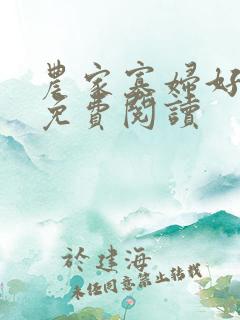 農家寡婦好
免費閱讀
於建海
未經同意禁止轉載